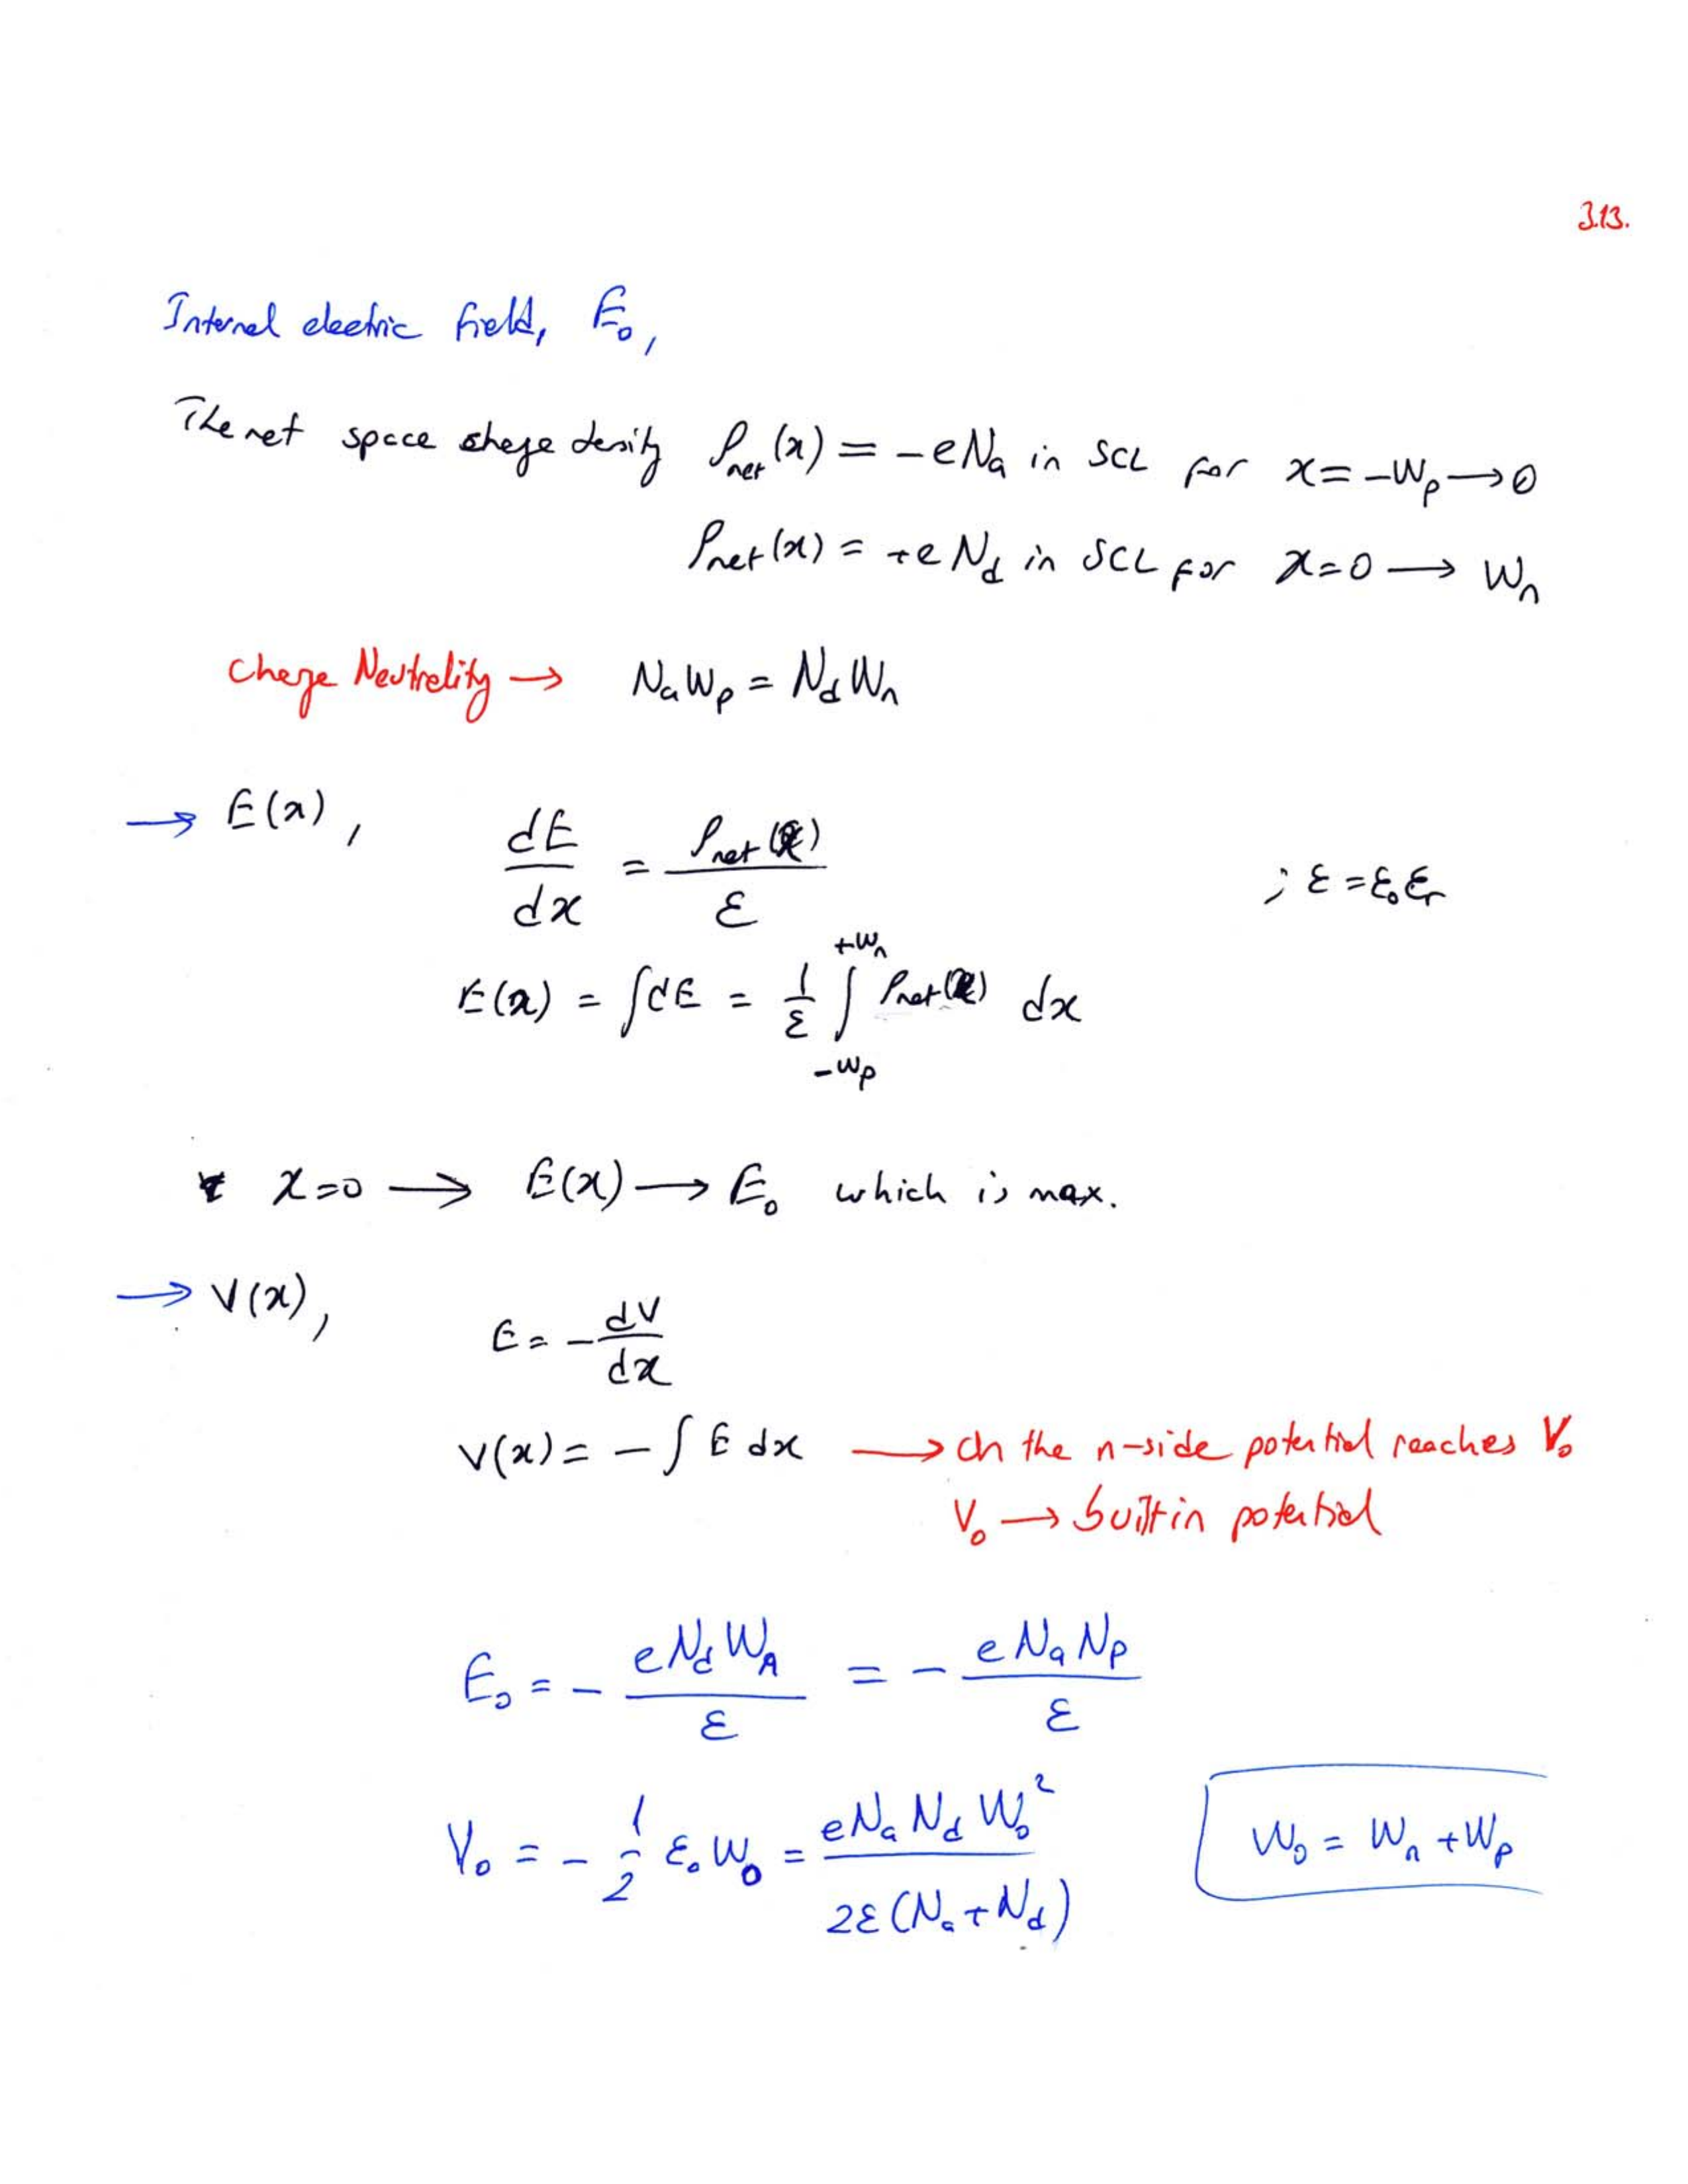 3.13.
Internal electric field, E₀,
The net space charge density ρnet(x) = -eNa in SCL for x = -Wp → 0
ρnet(x) = +eNd in SCL for x=0 → Wn
Charge Neutrality → NaWp = NdWn
→ E(x), dE/dx = ρnet(x)/ε ; ε = ε₀εr
E(x) = ∫dE = 1/ε ∫_{-Wp}^{+Wn} ρnet(x) dx
* x=0 → E(x) → E₀ which is max.
→ V(x), E = -dV/dx
V(x) = -∫E dx → on the n-side potential reaches V₀
V₀ → built in potential
E₀ = - eNdWn/ε = - eNaNp/ε
V₀ = - 1/2 ε₀W₀ = eNaNdW₀²/2ε(Na+Nd) W₀ = Wn + Wp